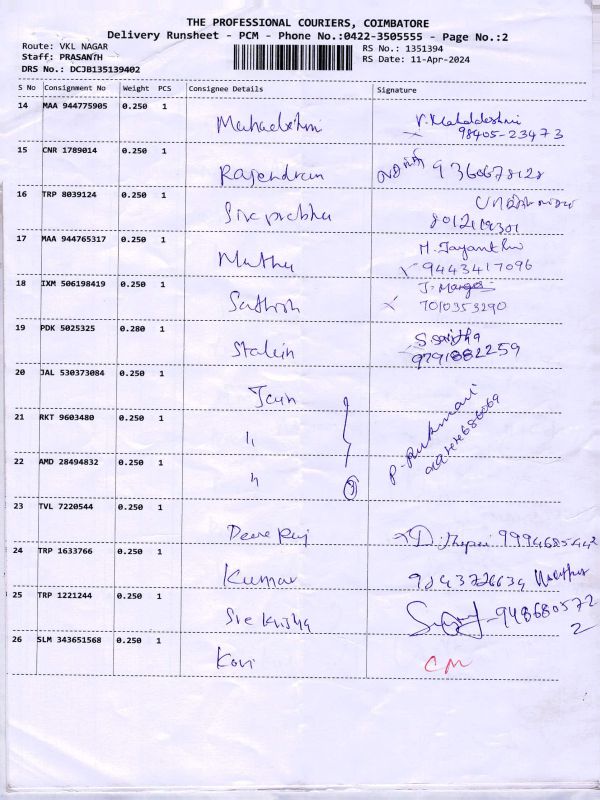 THE PROFESSIONAL COURIERS, COIMBATORE
Delivery Runsheet - PCM - Phone No.:0422-3505555 - Page No.:2
Route: VKL NAGAR
RS No.: 1351394
Staff: PRASANTH
RS Date: 11-Apr-2024
DRS No.: DCJB135139402
S No Consignment No Weight PCS Consignee Details Signature
14 MAA 944775905 0.250 1
Mahalakshmi V. Mahalakshmi
98405-23473
15 CNR 1789014 0.250 1
Rajendran 9360678128
16 TRP 8039124 0.250 1
Siva prabhu
17 MAA 944765317 0.250 1
Muthu M. Jayanthi
9443417096
18 IXM 506198419 0.250 1
Sathish
7010353290
19 PDK 5025325 0.280 1
Stalin S. Saritha
9791882259
20 JAL 530373084 0.250 1
Jain
21 RKT 9603480 0.250 1
"
P. Rukmani
22 AMD 28494832 0.250 1
" 3
23 TVL 7220544 0.250 1
Deva Raj 9994685442
24 TRP 1633766 0.250 1
Kumar 9843726634
25 TRP 1221244 0.250 1
Sre Krisha 9486805722
26 SLM 343651568 0.250 1
Kavi CM